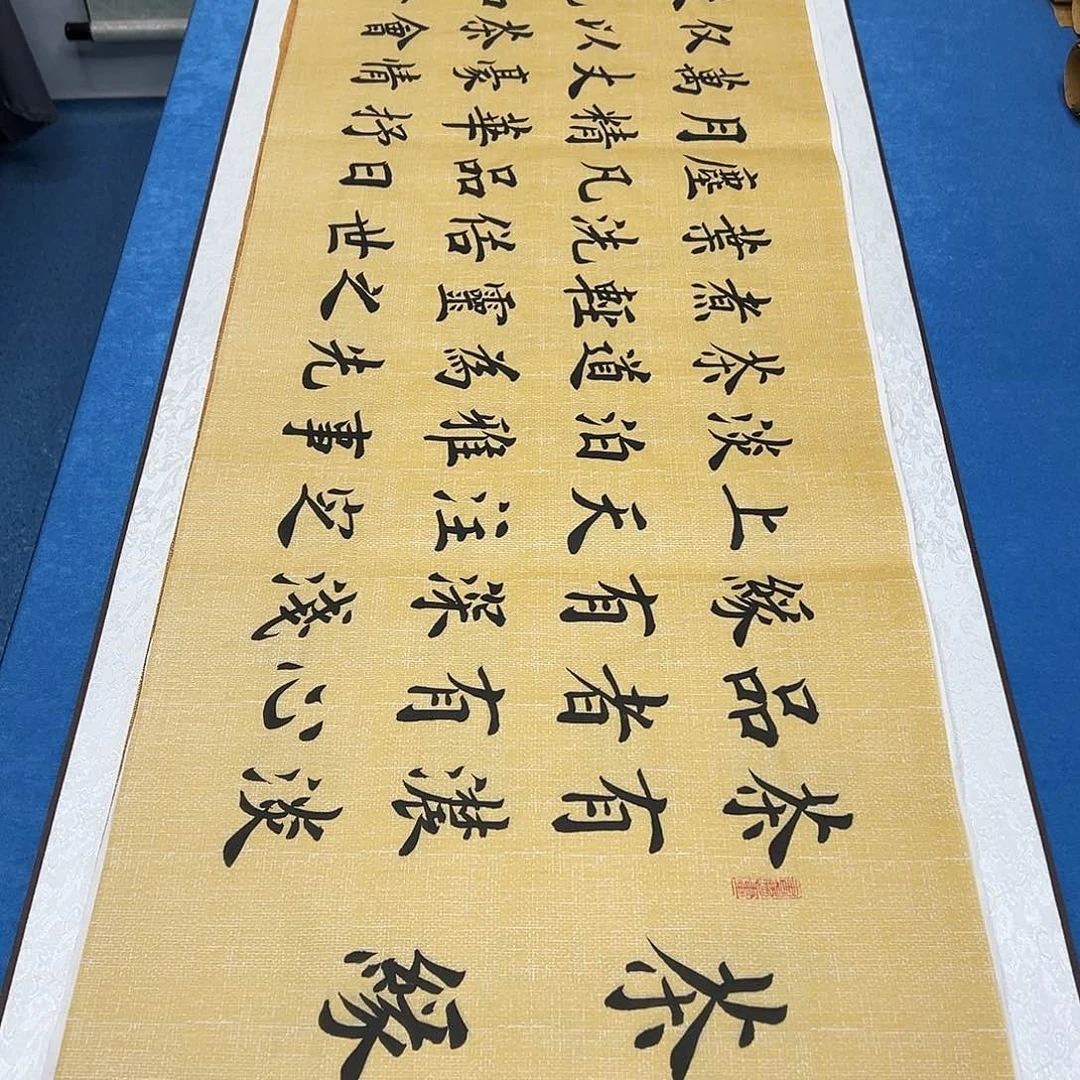 茶緣
茶有濃淡
品者有心
緣有深淺
上天注定
淡泊雅事
茶道為先
煮輕靈之
葉洗俗世
塵凡品日
月精華抒
萬丈豪情
仅以茶會